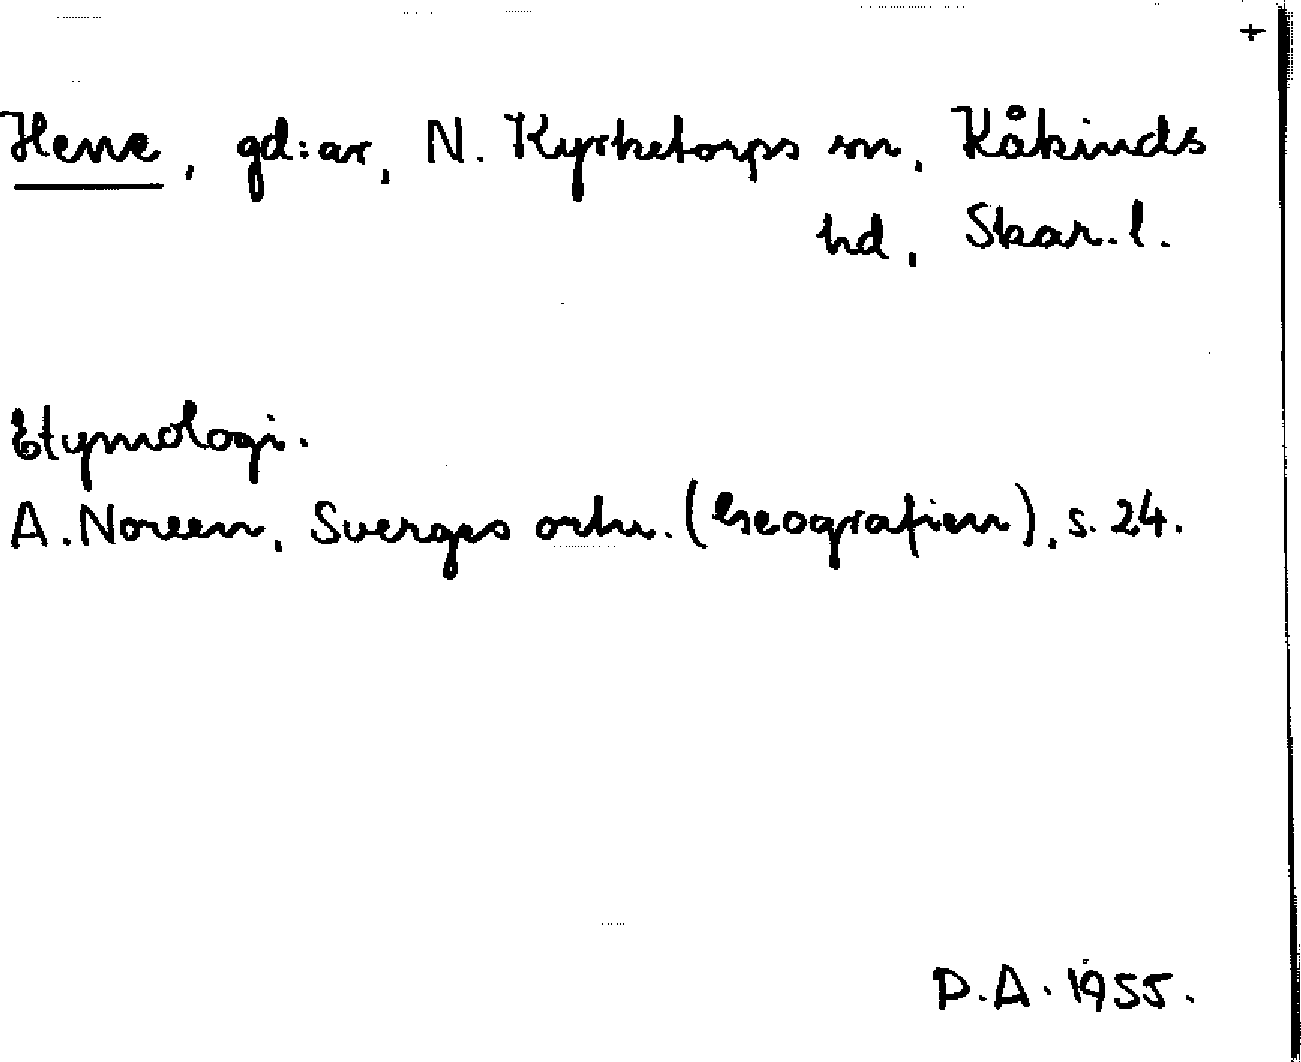 +
Hene, gd:ar, N. Kyrketorps sn, Kåkinds
hd, Skar. l.
Etymologi.
A. Noreen, Sverges ortn. (Geografien), s. 24.
D.A. 1955.